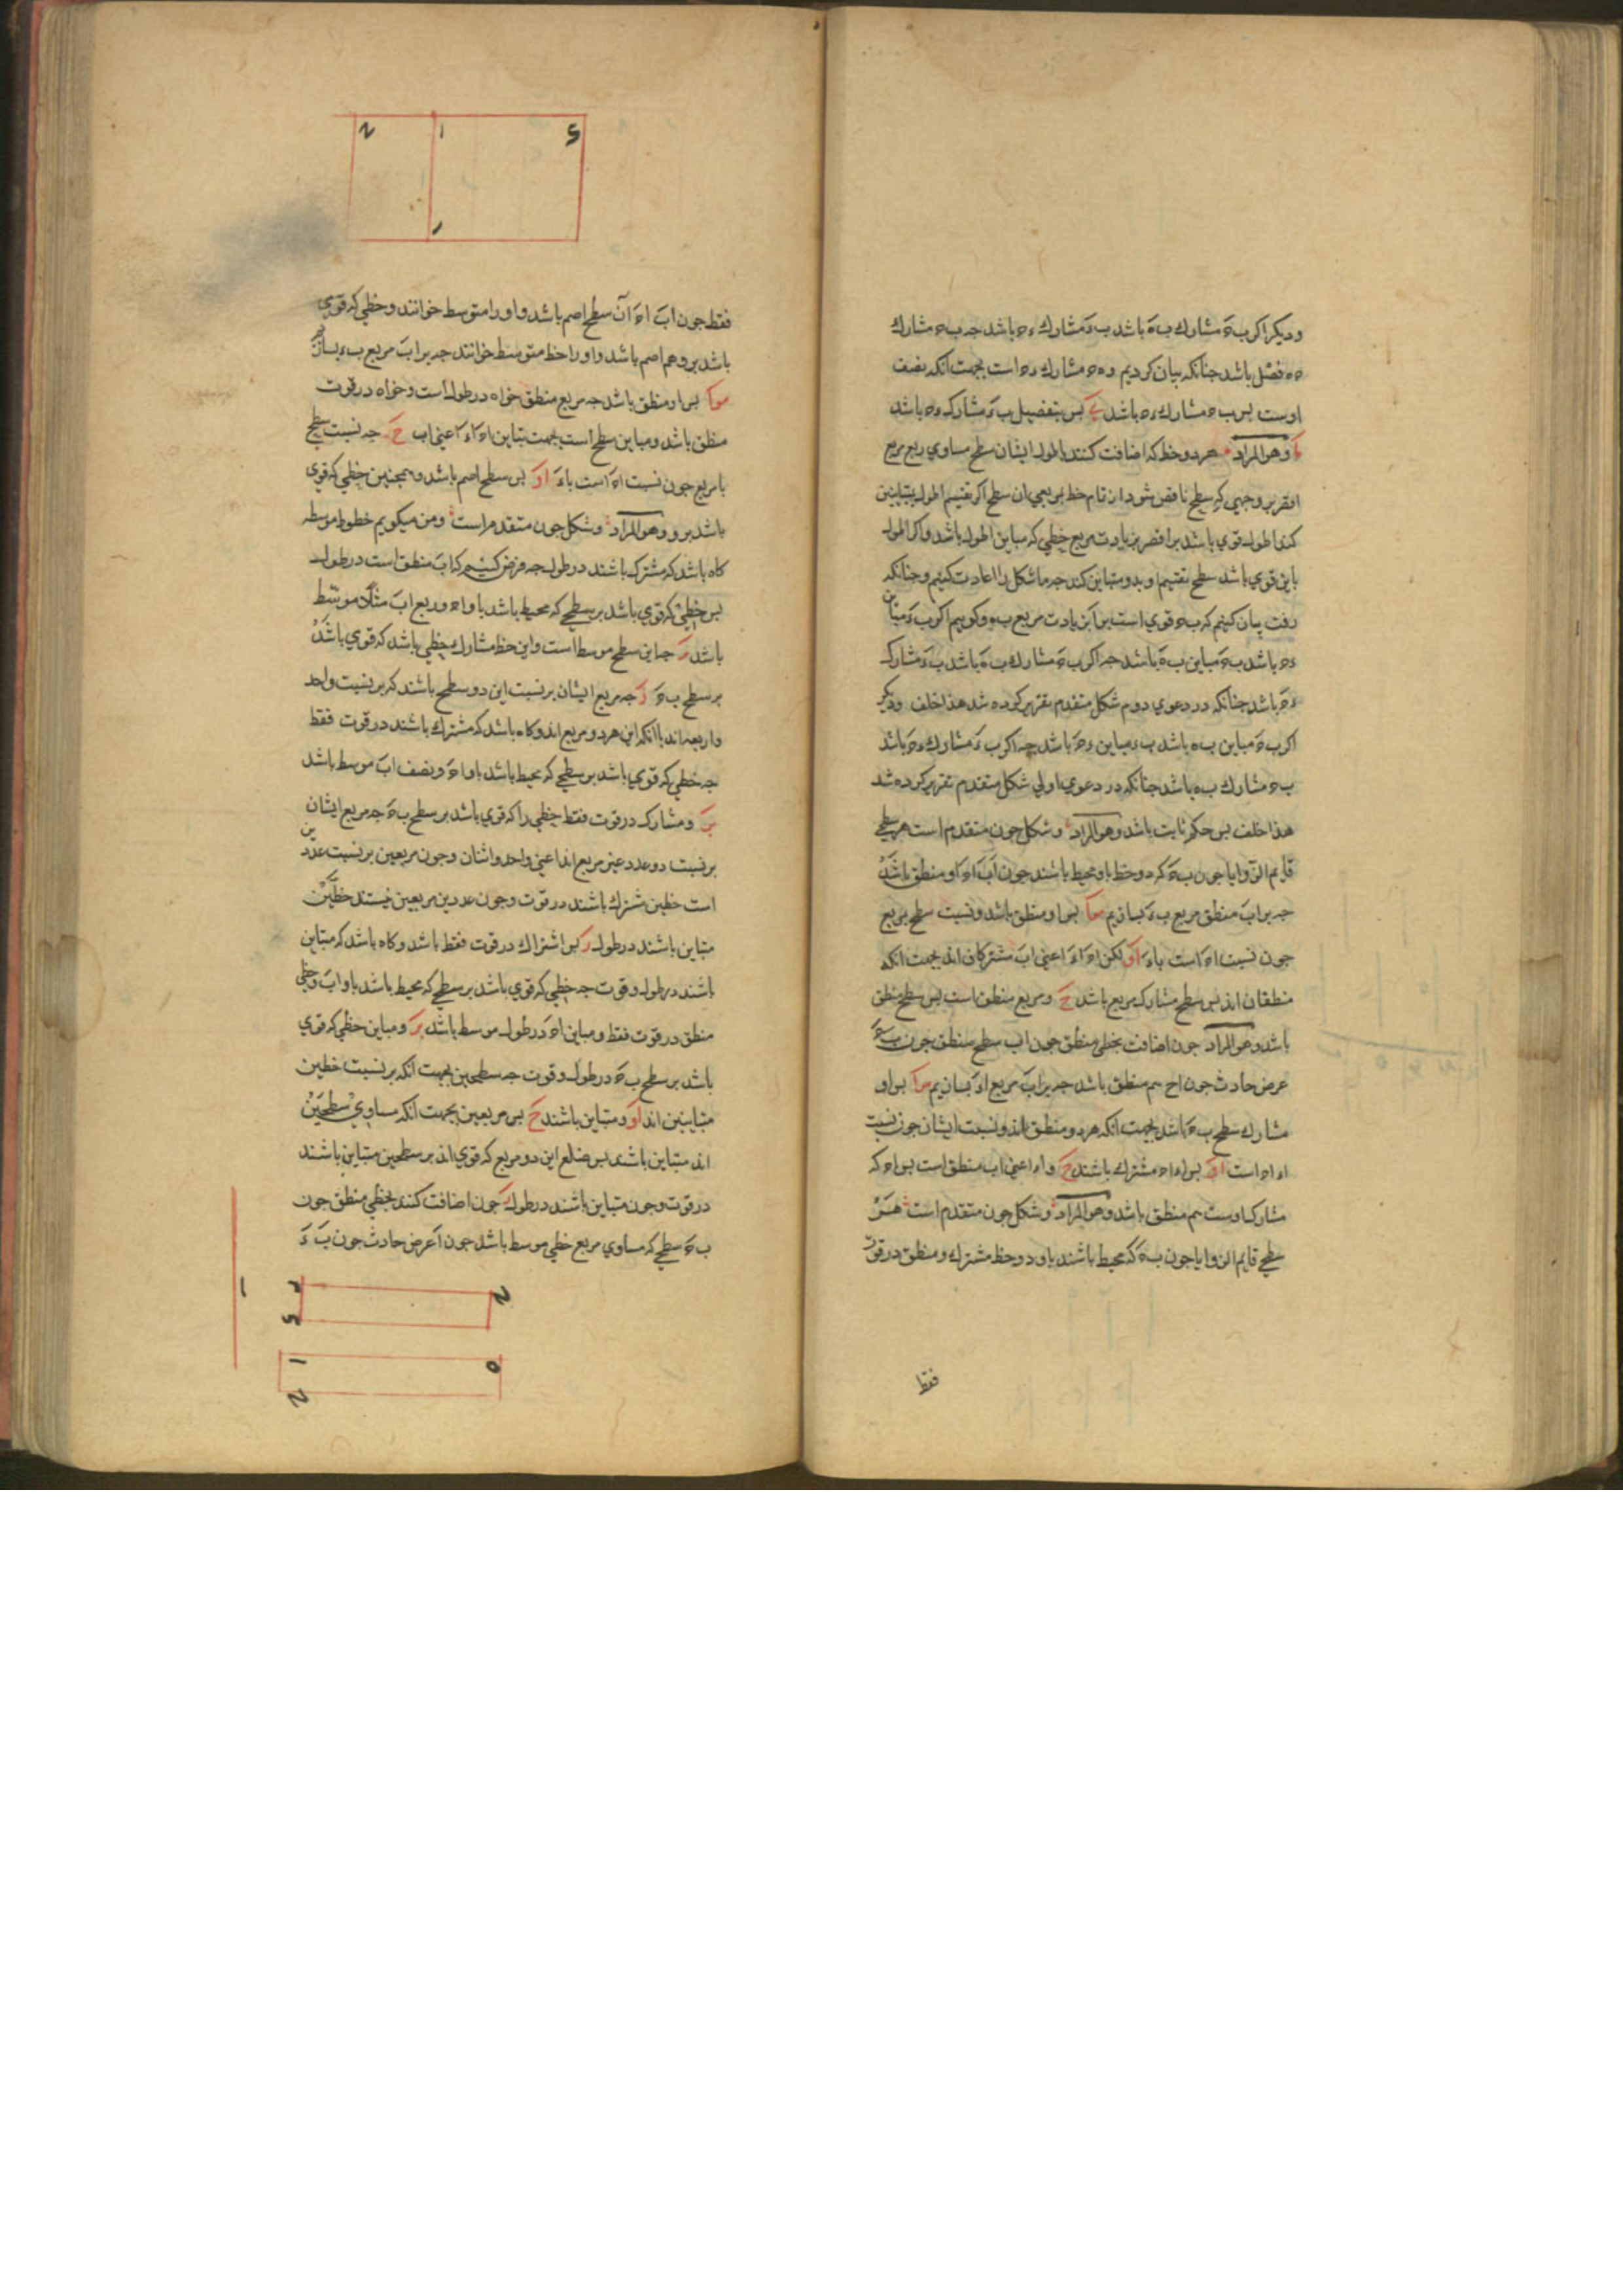 ودیکر اکر ب ه مشارك ب ه باشد ب ء مشارك ء ه باشد جه ب ه مشارك
ه ه فضل باشد جنانکه بیان کردیم و ه ه مشارك ء ه است بجهت انکه نصف
اوست بس ب ه مشارك ء ه باشد بس بتفضیل ب ء مشارك ء ه باشد
وهو المراد هر دو خط که اضافت کنند باطول ایشان سطح مساوي ربع مربع
اقصر بر وجهي که سطح ناقص شود از تمام خط بمربعي ان سطح اکر تقسیم اطول بمتباینین
کند اطول قوي باشد بر اقصر بزیادت مربع خطي که مباین اطول باشد واکر اطول
باین قوي باشد سطح تقسیم او بدو متباین کند جه ما شکل را اعادت کنیم وجنانکه
رفت بیان کنیم که ب ه قوي است بر اب بزیادت مربع ب ه وکوییم اکر ب ء مباین
ء ه باشد ب ه مباین ب ه باشد جه اکر ب ه مشارك ب ه باشد ب ء مشارك
ء ه باشد جنانکه در دعوي دوم شکل متقدم تقریر کرده شد هذا خلف ودیکر
اکر ب ه مباین ب ه باشد ب ء مباین ء ه باشد جه اکر ب ء مشارك ء ه باشد
ب ه مشارك ب ه باشد جنانکه در دعوي اولي شکل متقدم تقریر کرده شد
هذا خلف بس حکم ثابت باشد وهو المراد وشکل جون متقدم است هر سطحي
قایم الزوایا جون ب ه که دو خط باو محیط باشند جون اب اه او منطق باشد
جه بر اب منطق مربع ب ء بسازیم بس او منطق باشد ونسبت سطح بمربع
جون نسبت اه است باء او لکن اه اء اعني اب مشترکان اند بجهت انکه
منطقان اند بس سطح مشارك مربع باشد ح ومربع منطق است بس سطح منطق
باشد وهو المراد جون اضافت بخطي منطق جون اب سطح منطق جون ب ه
عرض حادث جون اح هم منطق باشد جه بر اب مربع اء بسازیم بس او
مشارك سطح ب ه باشد بجهت انکه هر دو منطق اند ونسبت ایشان جون نسبت
اء اه است او بس اء اه مشترك باشند ح واء اعني اب منطق است بس اه که
مشارك اوست هم منطق باشد وهو المراد وشکل جون متقدم است هر
سطحي قایم الزوایا جون ب ه که محیط باشند باو دو خط مشترك ومنطق در قوت
فقط
فقط جون اب اه ان سطح اصم باشد واو را متوسط خوانند وخطي که قوي
باشد برو هم اصم باشد واو را خط متوسط خوانند جه بر اب مربع ب ء بسازیم
بس او منطق باشد جه مربع منطق خواه در طول است وخواه در قوت
منطق باشد ومباین سطح است بجهت تباین اه اء اعني اب ح جه نسبت سطح
با مربع جون نسبت اه است باء او بس سطح اصم باشد وهمجنین خطي که قوي
باشد برو وهو المراد وشکل جون متقدم است ومن میکویم خطوط موسطه
کاه باشد که مشترك باشند در طول جه فرض کنیم که اب منطق است در طول
بس خطي که قوي باشد بر سطحي که محیط باشد باو اه وربع اب مثلا موسط
باشد جه این سطح موسط است واین خط مشارك خطي باشد که قوي باشد
بر سطح ب ه جه مربع ایشان بر نسبت این دو سطح باشند که بر نسبت واحد
واربعه اند با انکه این هر دو مربع اند وکاه باشد که مشترك باشند در قوت فقط
جه خطي که قوي باشد بر سطحي که محیط باشد باو اه ونصف اب موسط باشد
ومشارك در قوت فقط خطي را که قوي باشد بر سطح ب ه جه مربع ایشان
بر نسبت دو عدد غیر مربع اند اعني واحد واثنان وجون مربعین بر نسبت عددین
است خطین مشترك باشند در قوت وجون عددین مربعین نیستند خطین
متباین باشند در طول بس اشتراك در قوت فقط باشد وکاه باشد که متباین
باشند در طول وقوت جه خطي که قوي باشد بر سطحي که محیط باشد باو اب وخطي
منطق در قوت فقط ومباین اه در طول موسط باشد ومباین خطي که قوي
باشد بر سطح ب ه در طول وقوت جه سطحین بجهت انکه بر نسبت خطین
متباینین اند او ومتباین باشند ح بس مربعین بجهت انکه مساوي سطحین
اند متباین باشند بس ضلع این دو مربع که قوي اند بر سطحین متباین باشند
در قوت وجون متباین باشند در طول جون اضافت کنند بخطي منطق جون
ب ه سطحي که مساوي مربع خطي موسط باشد جون ا عرض حادث جون ب ء